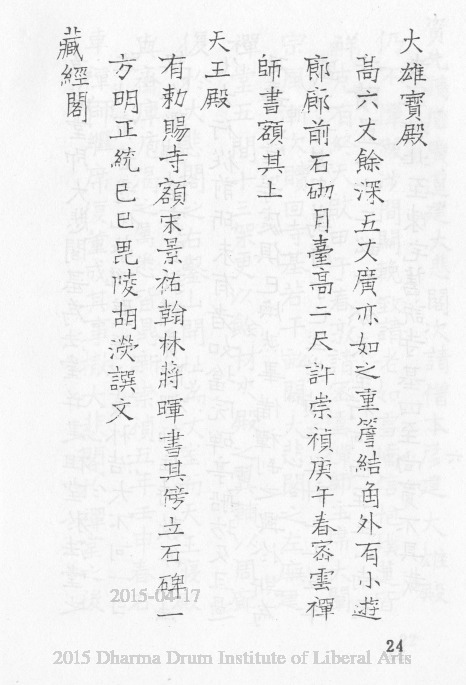 大雄寶殿
高六丈餘深五丈廣亦如之重簷結角外有小遊
廊廊前石砌月臺高二尺許崇禎庚午春密雲禪
師書額其上
天王殿
有勅賜寺額宋景祐翰林蔣暉書其傍立石碑一
方明正統己巳毘陵胡濙譔文
藏經閣
24
2015-04-17
2015 Dharma Drum Institute of Liberal Arts